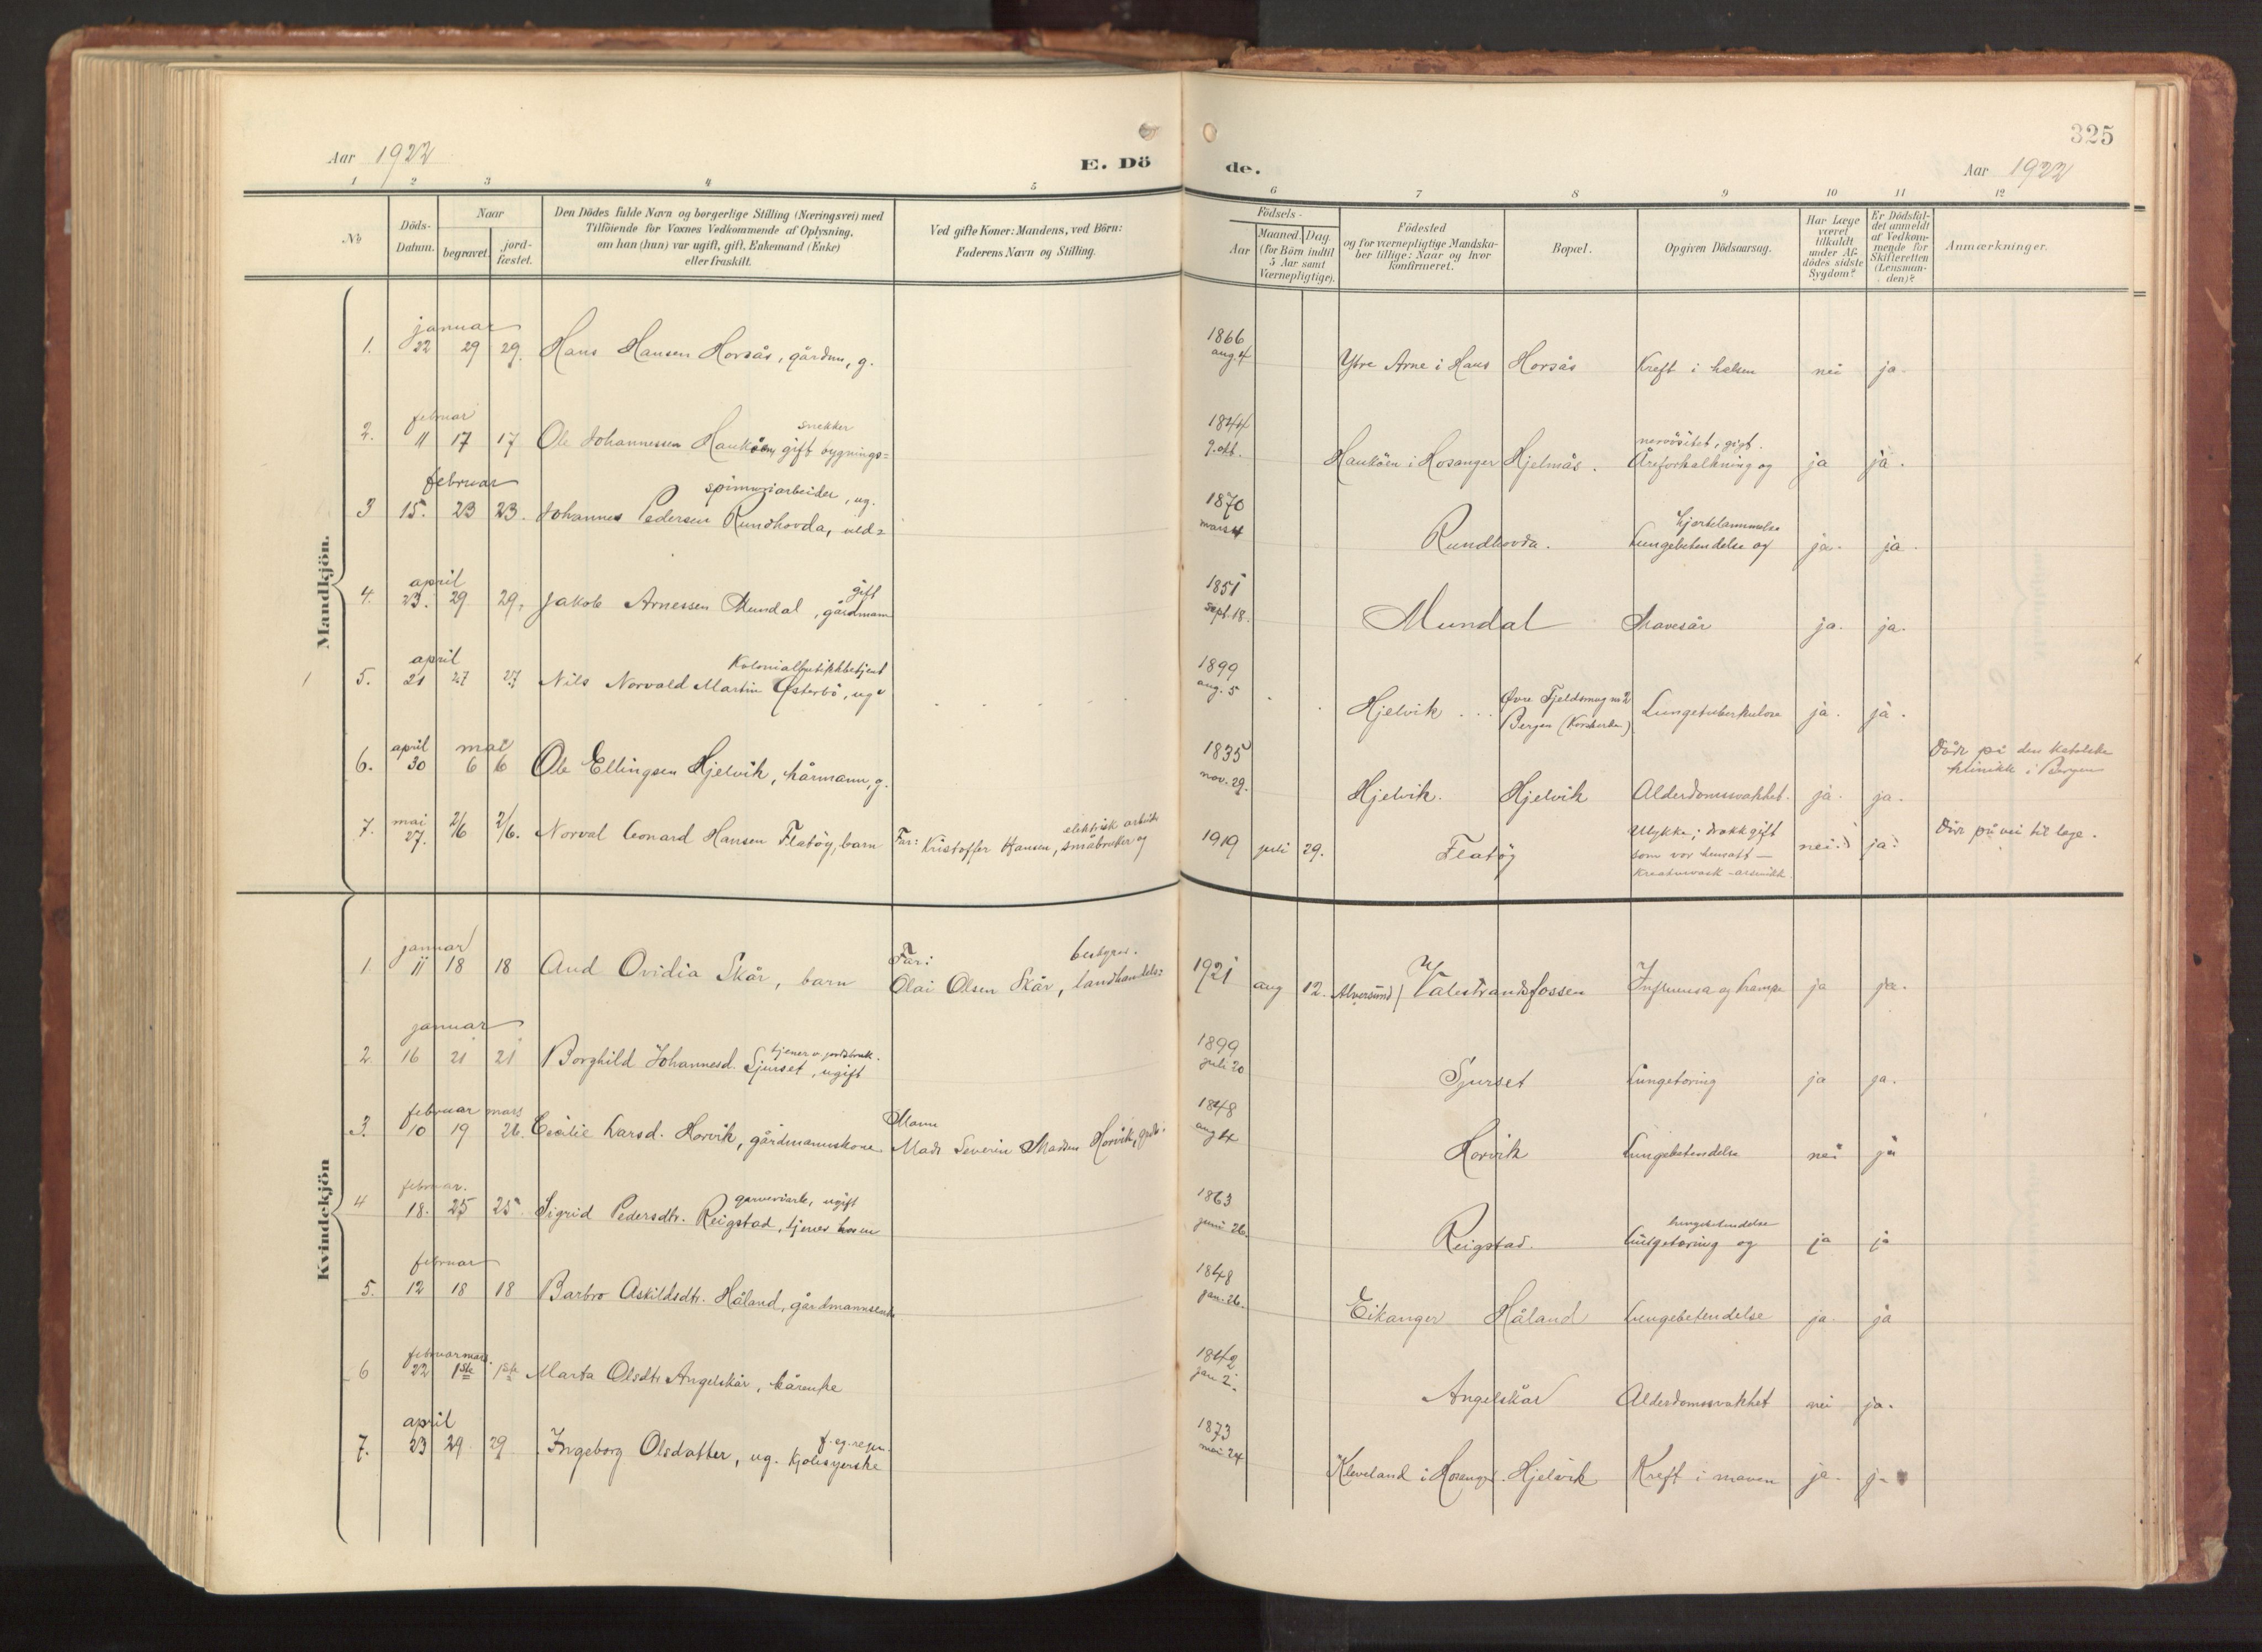 325
Aar 1922 E. Dö de. Aar 1922
1 2 3 4 5 6 7 8 9 10 11 12
No
Döds-
Datum.
Naar
begravet.
jord-
fæstet.
Den Dödes fulde Navn og borgerlige Stilling (Næringsvei) med
Tilföiende for Voxnes Vedkommende af Oplysning,
om han (hun) var ugift, gift, Enkemand (Enke)
eller fraskilt.
Ved gifte Koner: Mandens, ved Börn:
Faderens Navn og Stilling.
Födsels-
Aar
Maaned. Dag.
(for Börn indtil
5 Aar samt
Værnepligtige).
Födested
og for værnepligtige Mandska-
ber tillige: Naar og hvor
konfirmeret.
Bopæl.
Opgiven Dödsaarsag.
Har Læge
været
tilkaldt
under Af-
dödes sidste
Sygdom?
Er Dödsfal-
det anmeldt
af Vedkom-
mende for
Skifteretten
(Lensman-
den)?
Anmærkninger.
Mandkjön.
januar 1866
1. 22 29 29. Hans Hansen Horsås, gårdm, g. aug. 4 Ytre Arne i Haus Horsås Kreft i halsen nei ja.
februar snekker 1844 nervösitet, gigt.
2. 11 17 17 Ole Johannessen gift bygnings= 9. okt. i Hosanger Hjelmås. Åreforkalkning og ja ja.
februar spinneriarbeider, ug. 1870 hjertelammelse
3 15. 23 23. Johannes Pedersen Rundhovda, uld= mars 4 Rundhovda. Lungebetendelse og ja. ja.
april gift 1851
4. 23. 29 29. Jakob Arnessen Mundal, gårdmann sept. 18. Mundal Mavesår ja. ja.
april Kolonialbutikkbetjent 1899 Øvre Fjeldsmug nr 2
5. 21 27 27 Nils Norvald Martin Østerbö, ug. aug. 5 Hjelvik Bergen (Korskirken) Lungetuberkulose ja. ja.
april mai 1835 Döde på den katolske
6. 30 6 6 Ole Ellingsen Hjelvik, kårmann, g. nov. 29. Hjelvik. Hjelvik Alderdomssvakhet. ja. ja. klinikk i Bergen
mai elektrisk arbeid Ulykke; drakk gift
7. 27. 2/6 2/6. Norval Leonard Hansen Flatöy, barn Far: Kristoffer Hansen, småbruker og 1919 juli 29. Flatöy som var hensatt — nei. ja. Död på vei til lege.
arsenikk.
Kvindekjön
januar Far: bestyrer. 1921
1. 11 18 18 Aud Ovidia Skår, barn Olai Olsen Skår, landhandels= aug 12. Alversund Valestrandsfossen Influensa og krampe ja ja.
januar tjener v. jordbruk. 1899
2. 16 21 21 Borghild Johannesd. Sjurset, ugift juli 20 Sjurset Lungetæring ja ja.
februar mars Mann 1848
3. 10 19 26. Cecilie Larsd. Horvik, gårdmannskone Mads Severin Madsen Horvik, aug 4 Horvik Lungebetendelse nei ja
februar. ugift 1863 lungebetendelse
4 18. 25 25. Sigrid Pedersdtr. Reigstad, tjener hos en juni 26. Reigstad. Lungetæring og ja ja
februar 1848
5. 12 18 18 Barbro Askildsdtr. Håland, jan. 26. Eikanger Håland Lungebetendelse ja. ja
februar mars. 1842
6 22 1ste 1ste Marta Olsdtr Angelskår, kårenke jan 2. Angelskår Alderdomssvakhet nei ja.
april 1873
7. 23 29 29 Ingeborg Olsdatter, ug. Kjolesyerske mai 24 Kleveland i Hosanger. Hjelvik Kreft i maven ja. ja